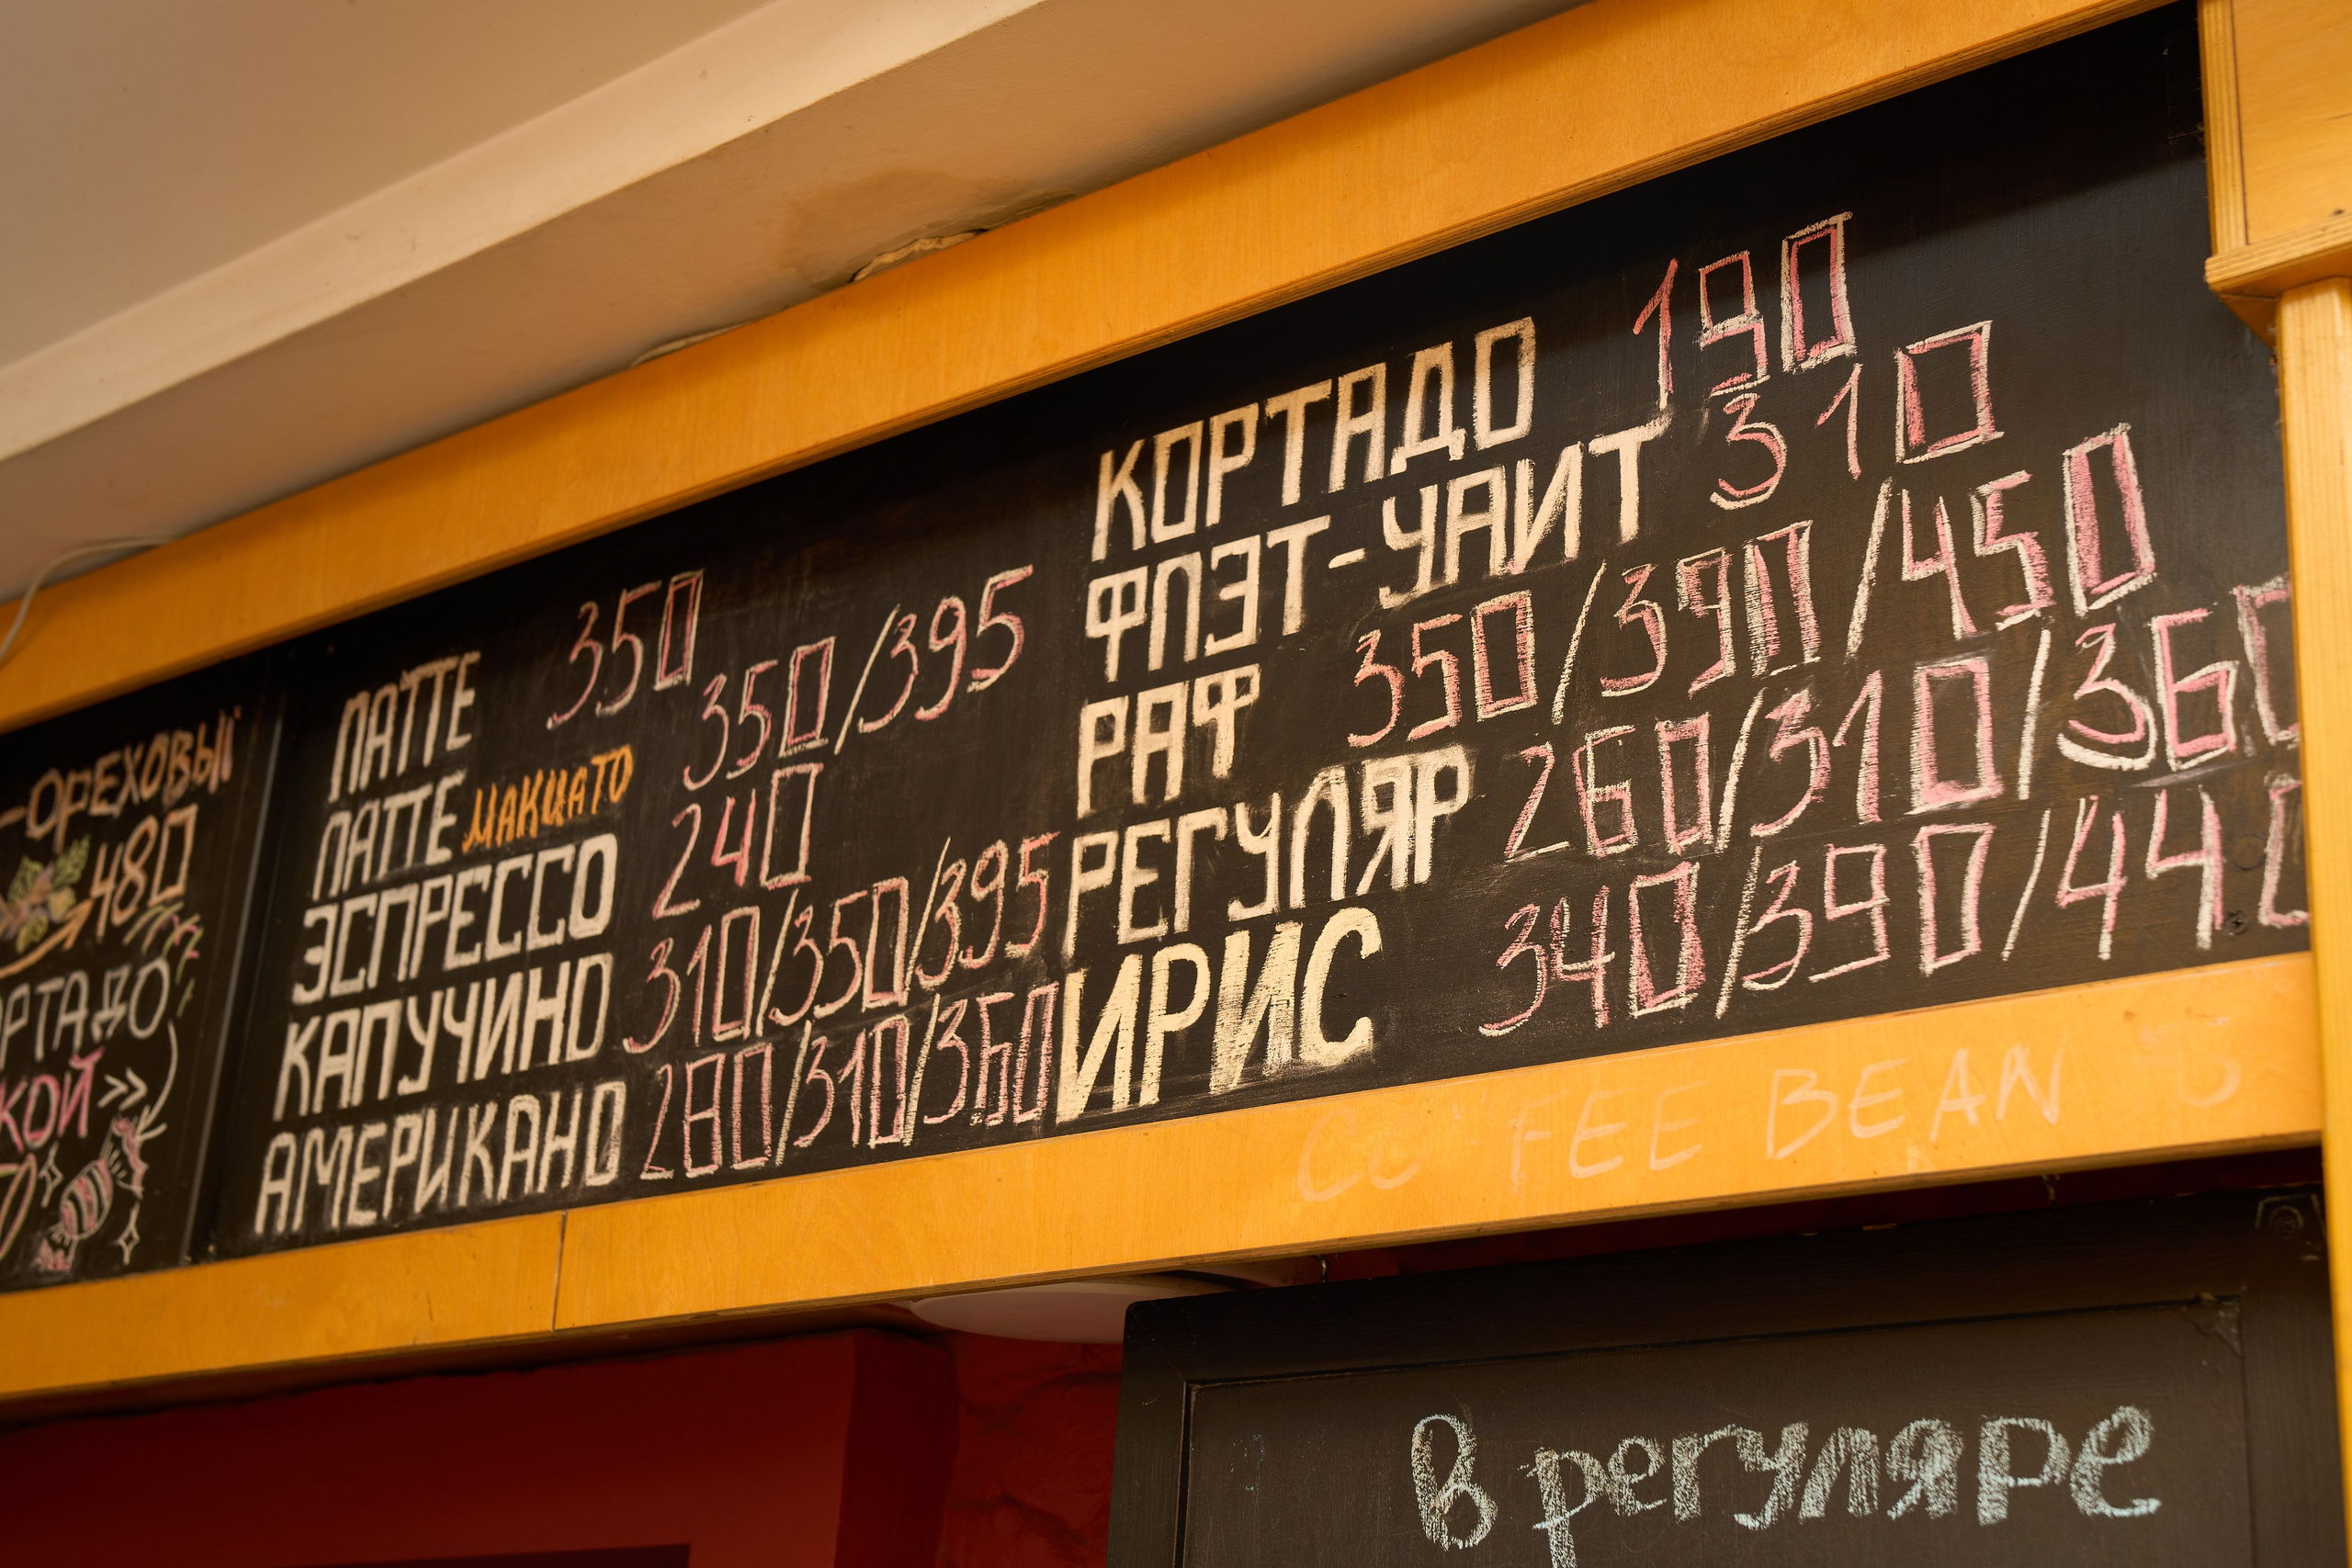 -ОРЕХОВЫЙ
480
РТАДО
КОЙ >>
ЛАТТЕ 350
ЛАТТЕ МАКИАТО 350/395
ЭСПРЕССО 240
КАПУЧИНО 310/350/395
АМЕРИКАНО 280/310/360
КОРТАДО 190
ФЛЭТ-УАЙТ 310
РАФ 350/390/450
РЕГУЛЯР 260/310/360
ИРИС 340/390/440
COFFEE BEAN
в регуляре